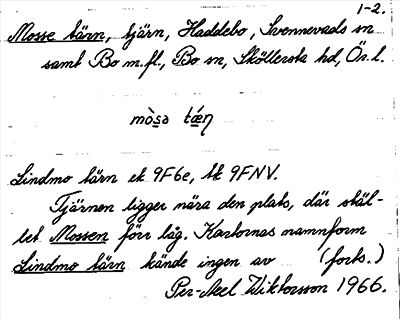 1-2.
Mosse tärn, tjärn, Haddebo, Svennevads sn
samt Bo m.fl, Bo sn, Sköllersta hd, Ör. l.
mò̀sə tǽɳ
Lindmo tärn ek 9F6e, tk 9FNV.
Tjärnen ligger nära den plats, där stäl-
let Mossen förr låg. Kartornas namnform
Lindmo tärn kände ingen av (forts.)
Per-Axel Wiktorsson 1966.